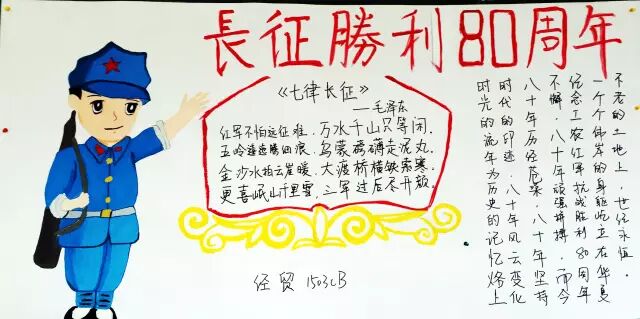 長征勝利80周年
《七律长征》
——毛泽东
红军不怕远征难，万水千山只等闲，
五岭逶迤腾细浪，乌蒙磅礴走泥丸，
金沙水拍云崖暖，大渡桥横铁索寒，
更喜岷山千里雪，三军过后尽开颜。
不老的土地上，世纪永恒，
一个个伟岸的身躯屹立在华夏
纪念工农红军抗战胜利80周年
不懈，八十年顽强拼搏，而今
八十年历经，八十年坚持
时代的印迹，八十年风云变化
时光的流年为历史的记忆烙上
经贸1503CB